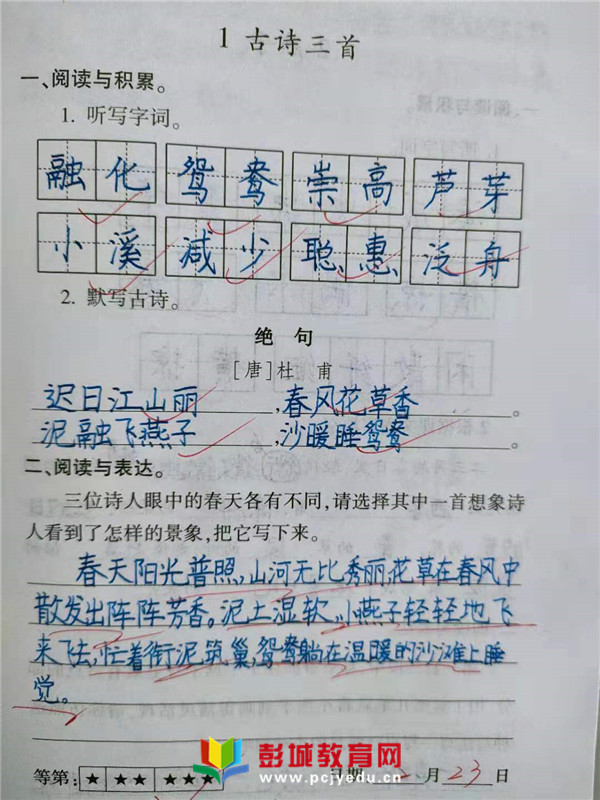 1 古诗三首
一、阅读与积累。
1. 听写字词。
融化 鸳鸯 崇高 芦芽
小溪 减少 聪惠 泛舟
2. 默写古诗。
绝 句
[唐]杜 甫
迟日江山丽,春风花草香。
泥融飞燕子,沙暖睡鸳鸯。
二、阅读与表达。
三位诗人眼中的春天各有不同,请选择其中一首想象诗
人看到了怎样的景象,把它写下来。
春天阳光普照,山河无比秀丽,花草在春风中
散发出阵阵芳香。泥土湿软,小燕子轻轻地飞
来飞去,忙着衔泥筑巢,鸳鸯躺在温暖的沙滩上睡
觉。
彭城教育网
www.pcjyedu.com
等第:★★★★★ 月23日